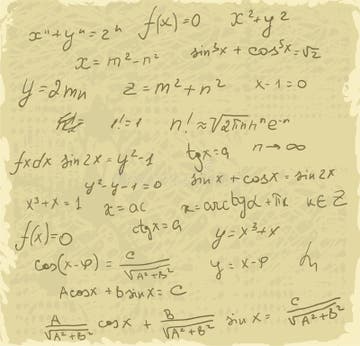 xⁿ+yⁿ=zⁿ f(x)=0 x²+y²
x=m²-n² sin⁵x+cos⁵x=√2
y=2mn z=m²+n² x-1=0
1!=1 n!≈√2πn nⁿe⁻ⁿ
fxdx sin2x=y²-1 tgx=a n→∞
y²-y-1=0 sinx+cosx=sin2x
x³+x=1 x=ac x=arctgα+πk k∈Z
f(x)=0 ctgx=a y=x³+x
cos(x-φ)=C/√A²+B² y=x-φ
Acosx+bsinx=C
A/√A²+B² cosx+B/√A²+B² sinx=C/√A²+B²